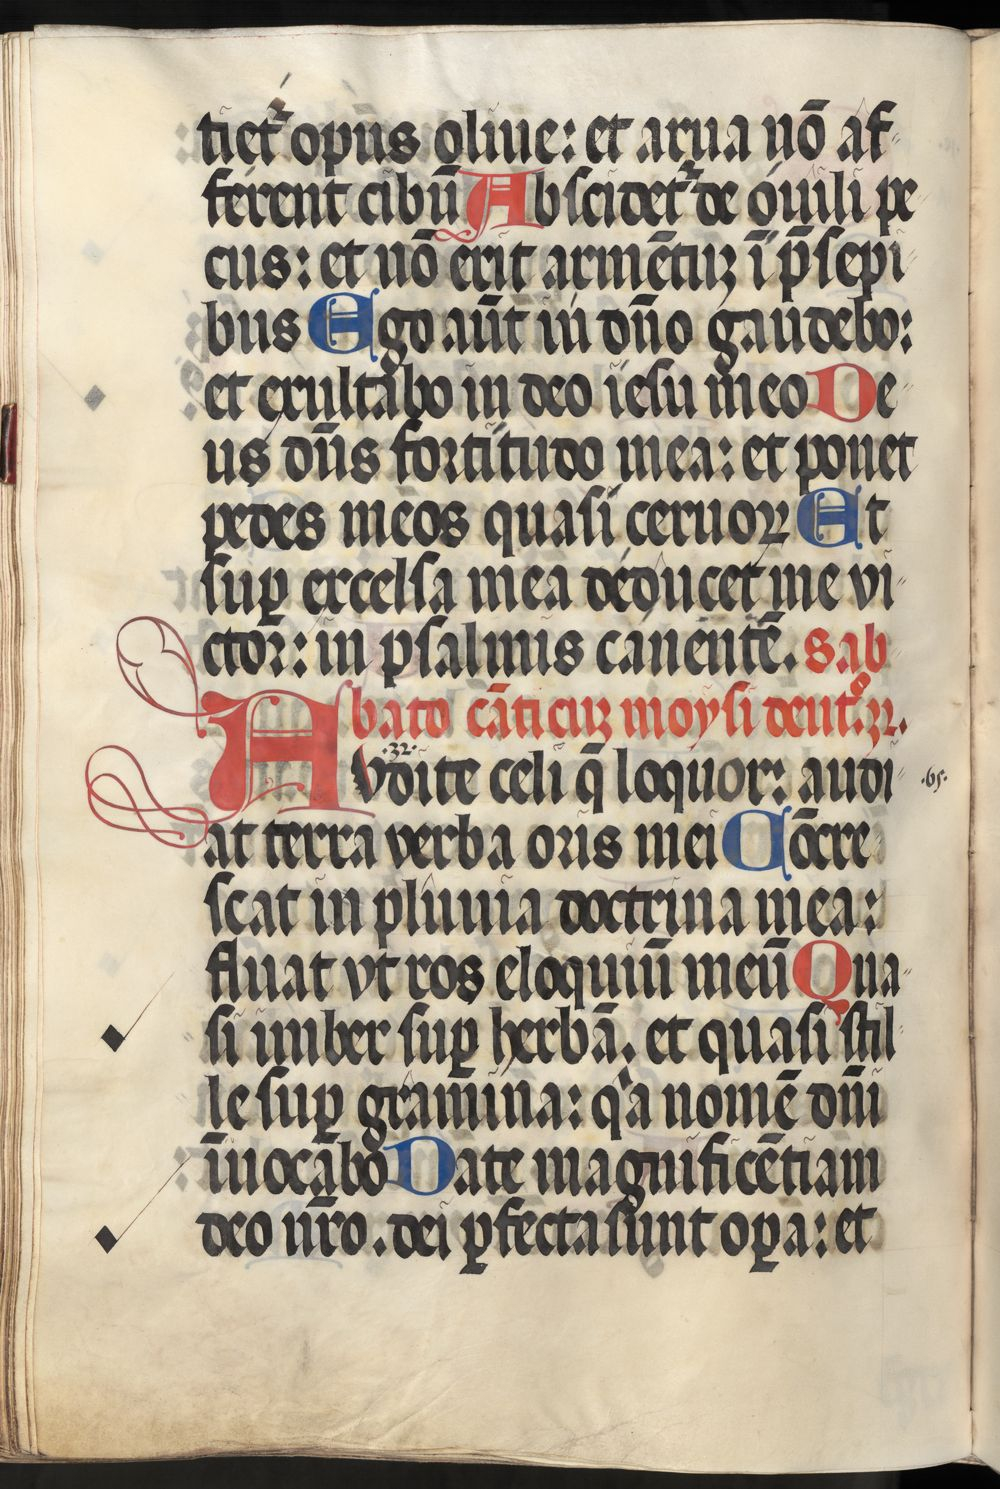 tiet᷑ opus oliue: et arua nō af-
ferent cibū Abscidet᷑ de ouili pe
cus: et nō erit armētuꝫ ī p̄sepi-
bus Ego aūt in dn̄o gaudebo:
et exultabo in deo iesu meo De-
us dn̄s fortitudo mea: et ponet
pedes meos quasi ceruoꝝ Et
suꝑ excelsa mea deducet me vi-
ctor: in psalmis canentē. sab
bato cāticuꝫ moysi deut.º
.32.
Avdite celi q̄ loquor: audi-
.65.
at terra verba oris mei Cōcre
scat in pluuia doctrina mea:
fluat vt ros eloquiū meū Qua-
si imber suꝑ herbā. et quasi stil-
le suꝑ gramina: qͥa nomē dn̄i
īuocabo Date magnificētiam
deo nr̄o. dei ꝑfecta sunt oꝑa: et